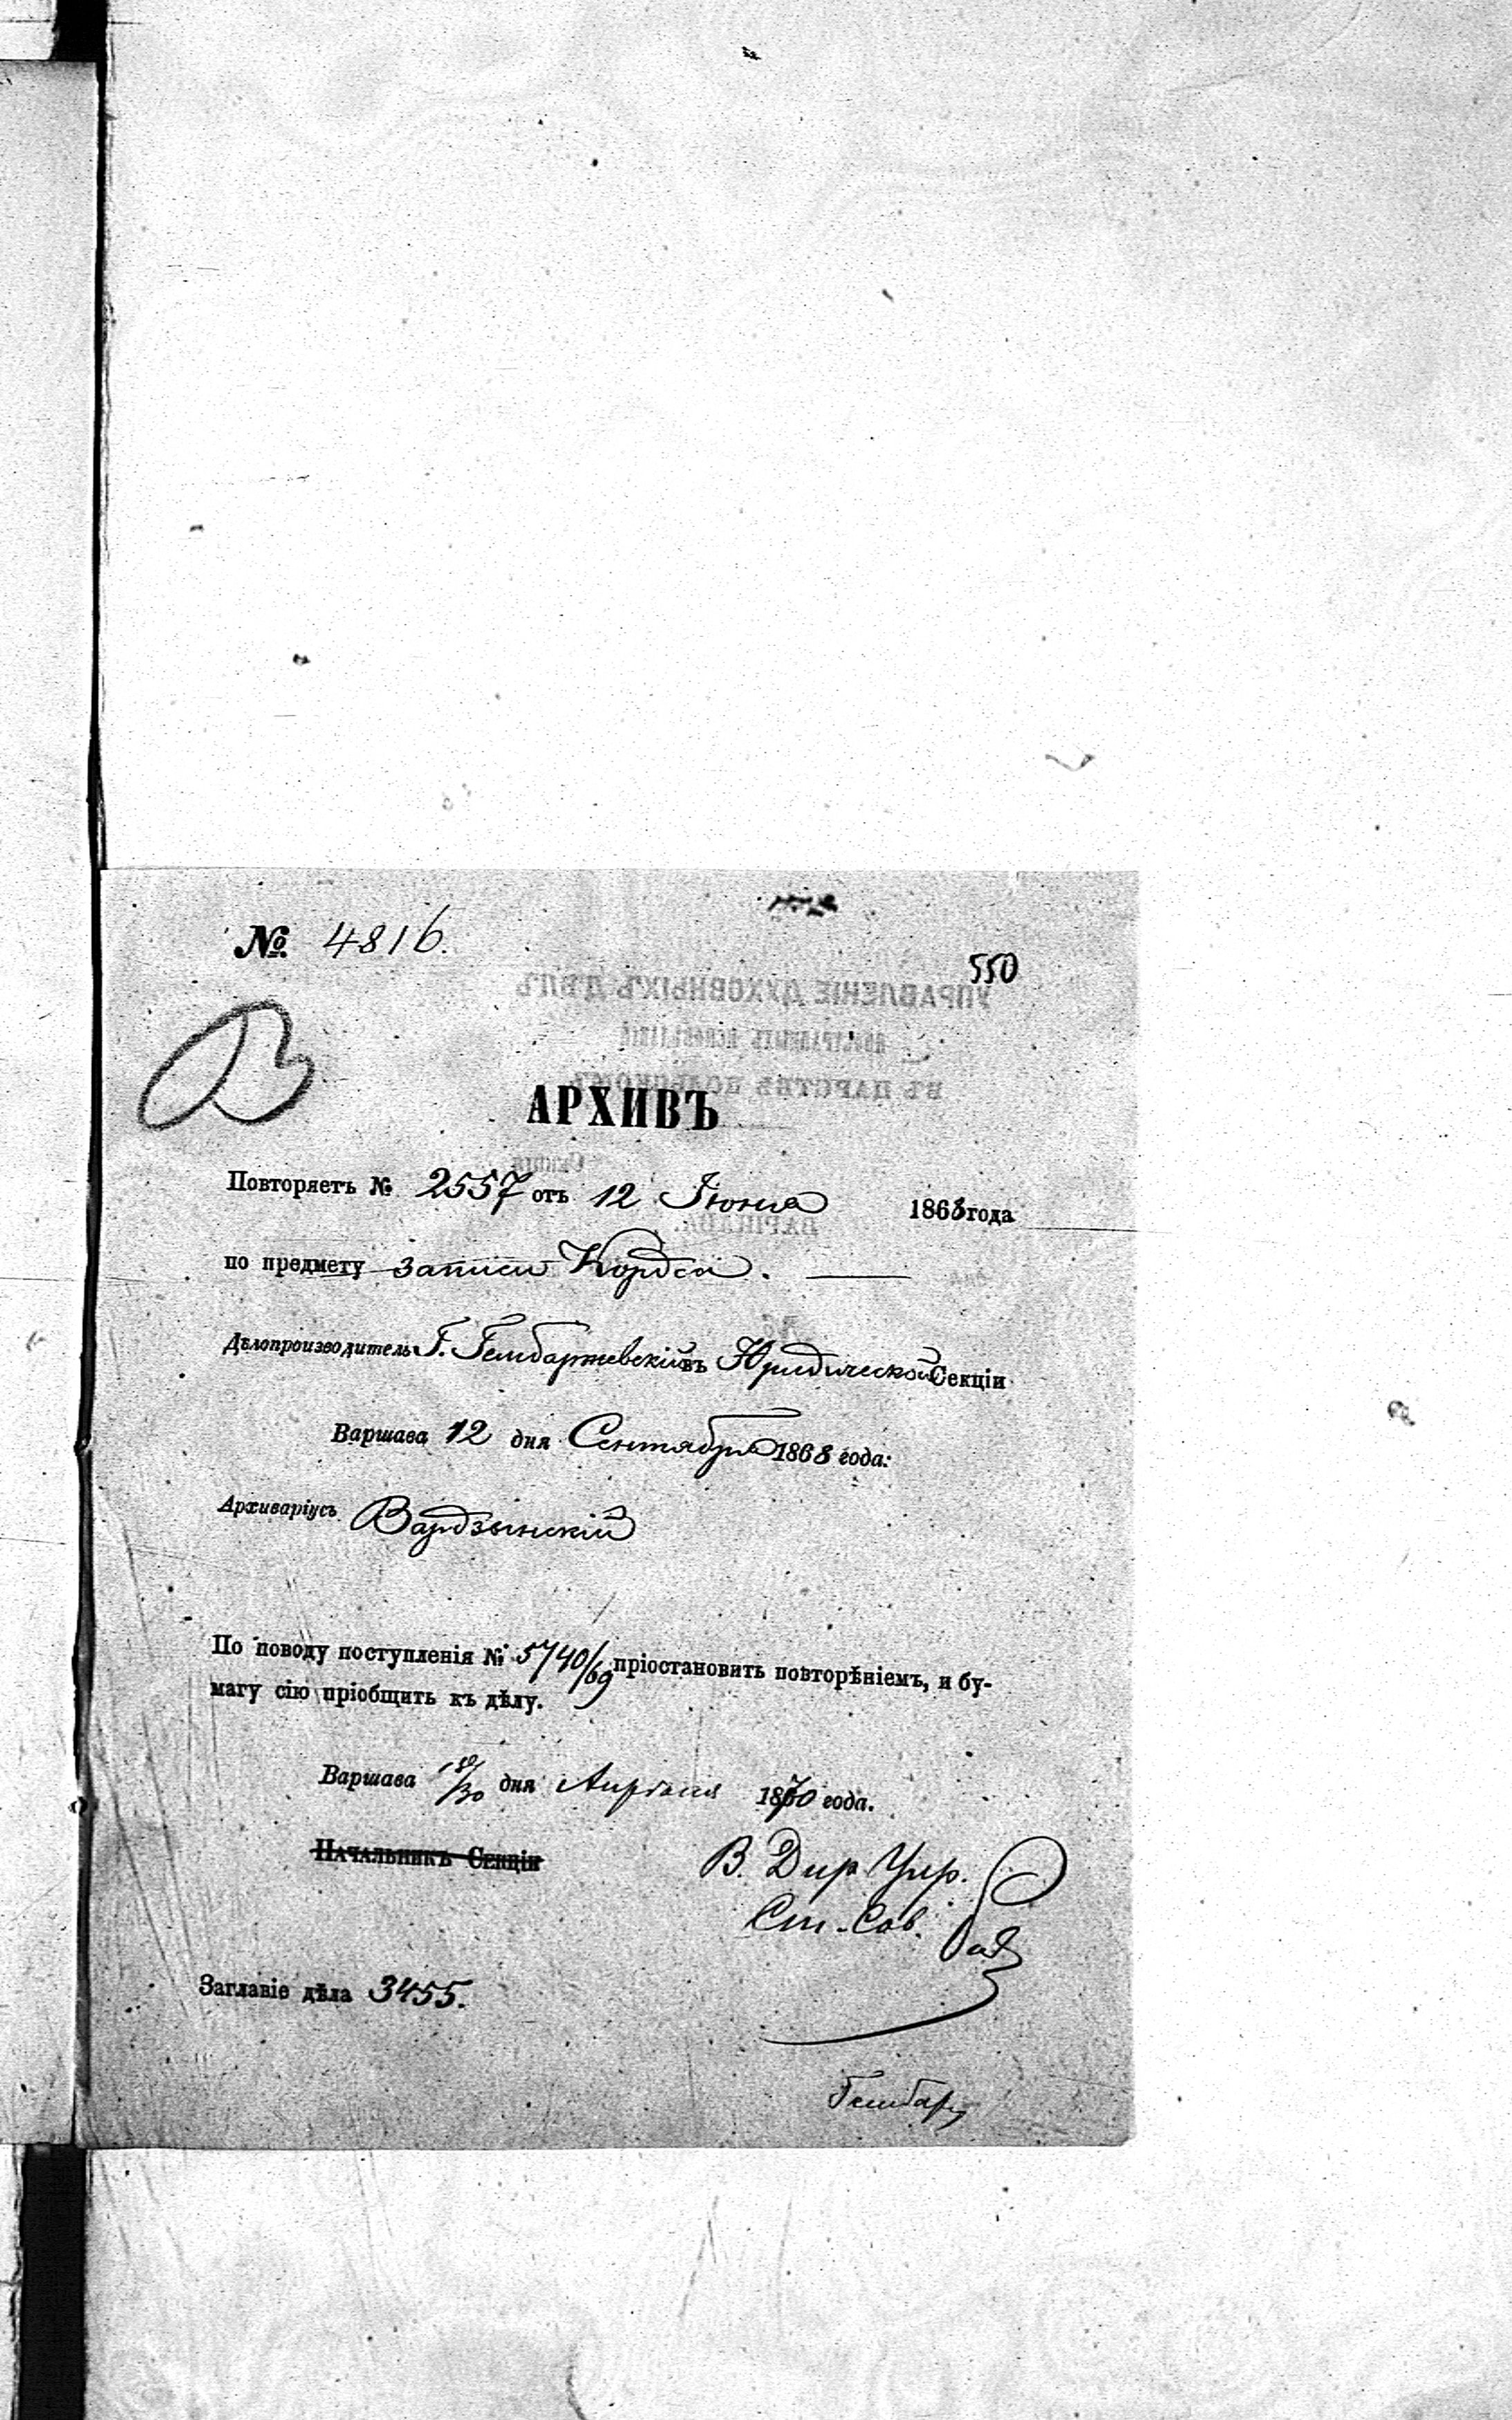 № 4816.
550
АРХИВЪ
Повторяетъ № 2557 отъ 12 Іюня 1868 года
по предмету записи Кордса.
Дѣлопроизводитель Г. Гембаржевскій въ Юридической Секціи
Варшава 12 дня Сентября 1868 года:
Архиваріусъ Вардзынскій
По поводу поступленія № 5740/69 пріостановить повторѣніемъ, и бу-
магу сію пріобщить къ дѣлу.
Варшава 18/30 дня Апрѣля 1870 года.
Начальникъ Секціи
В. Дир. Упр.
Ст. Сов.
Заглавіе дѣла 3455.
Гембарж